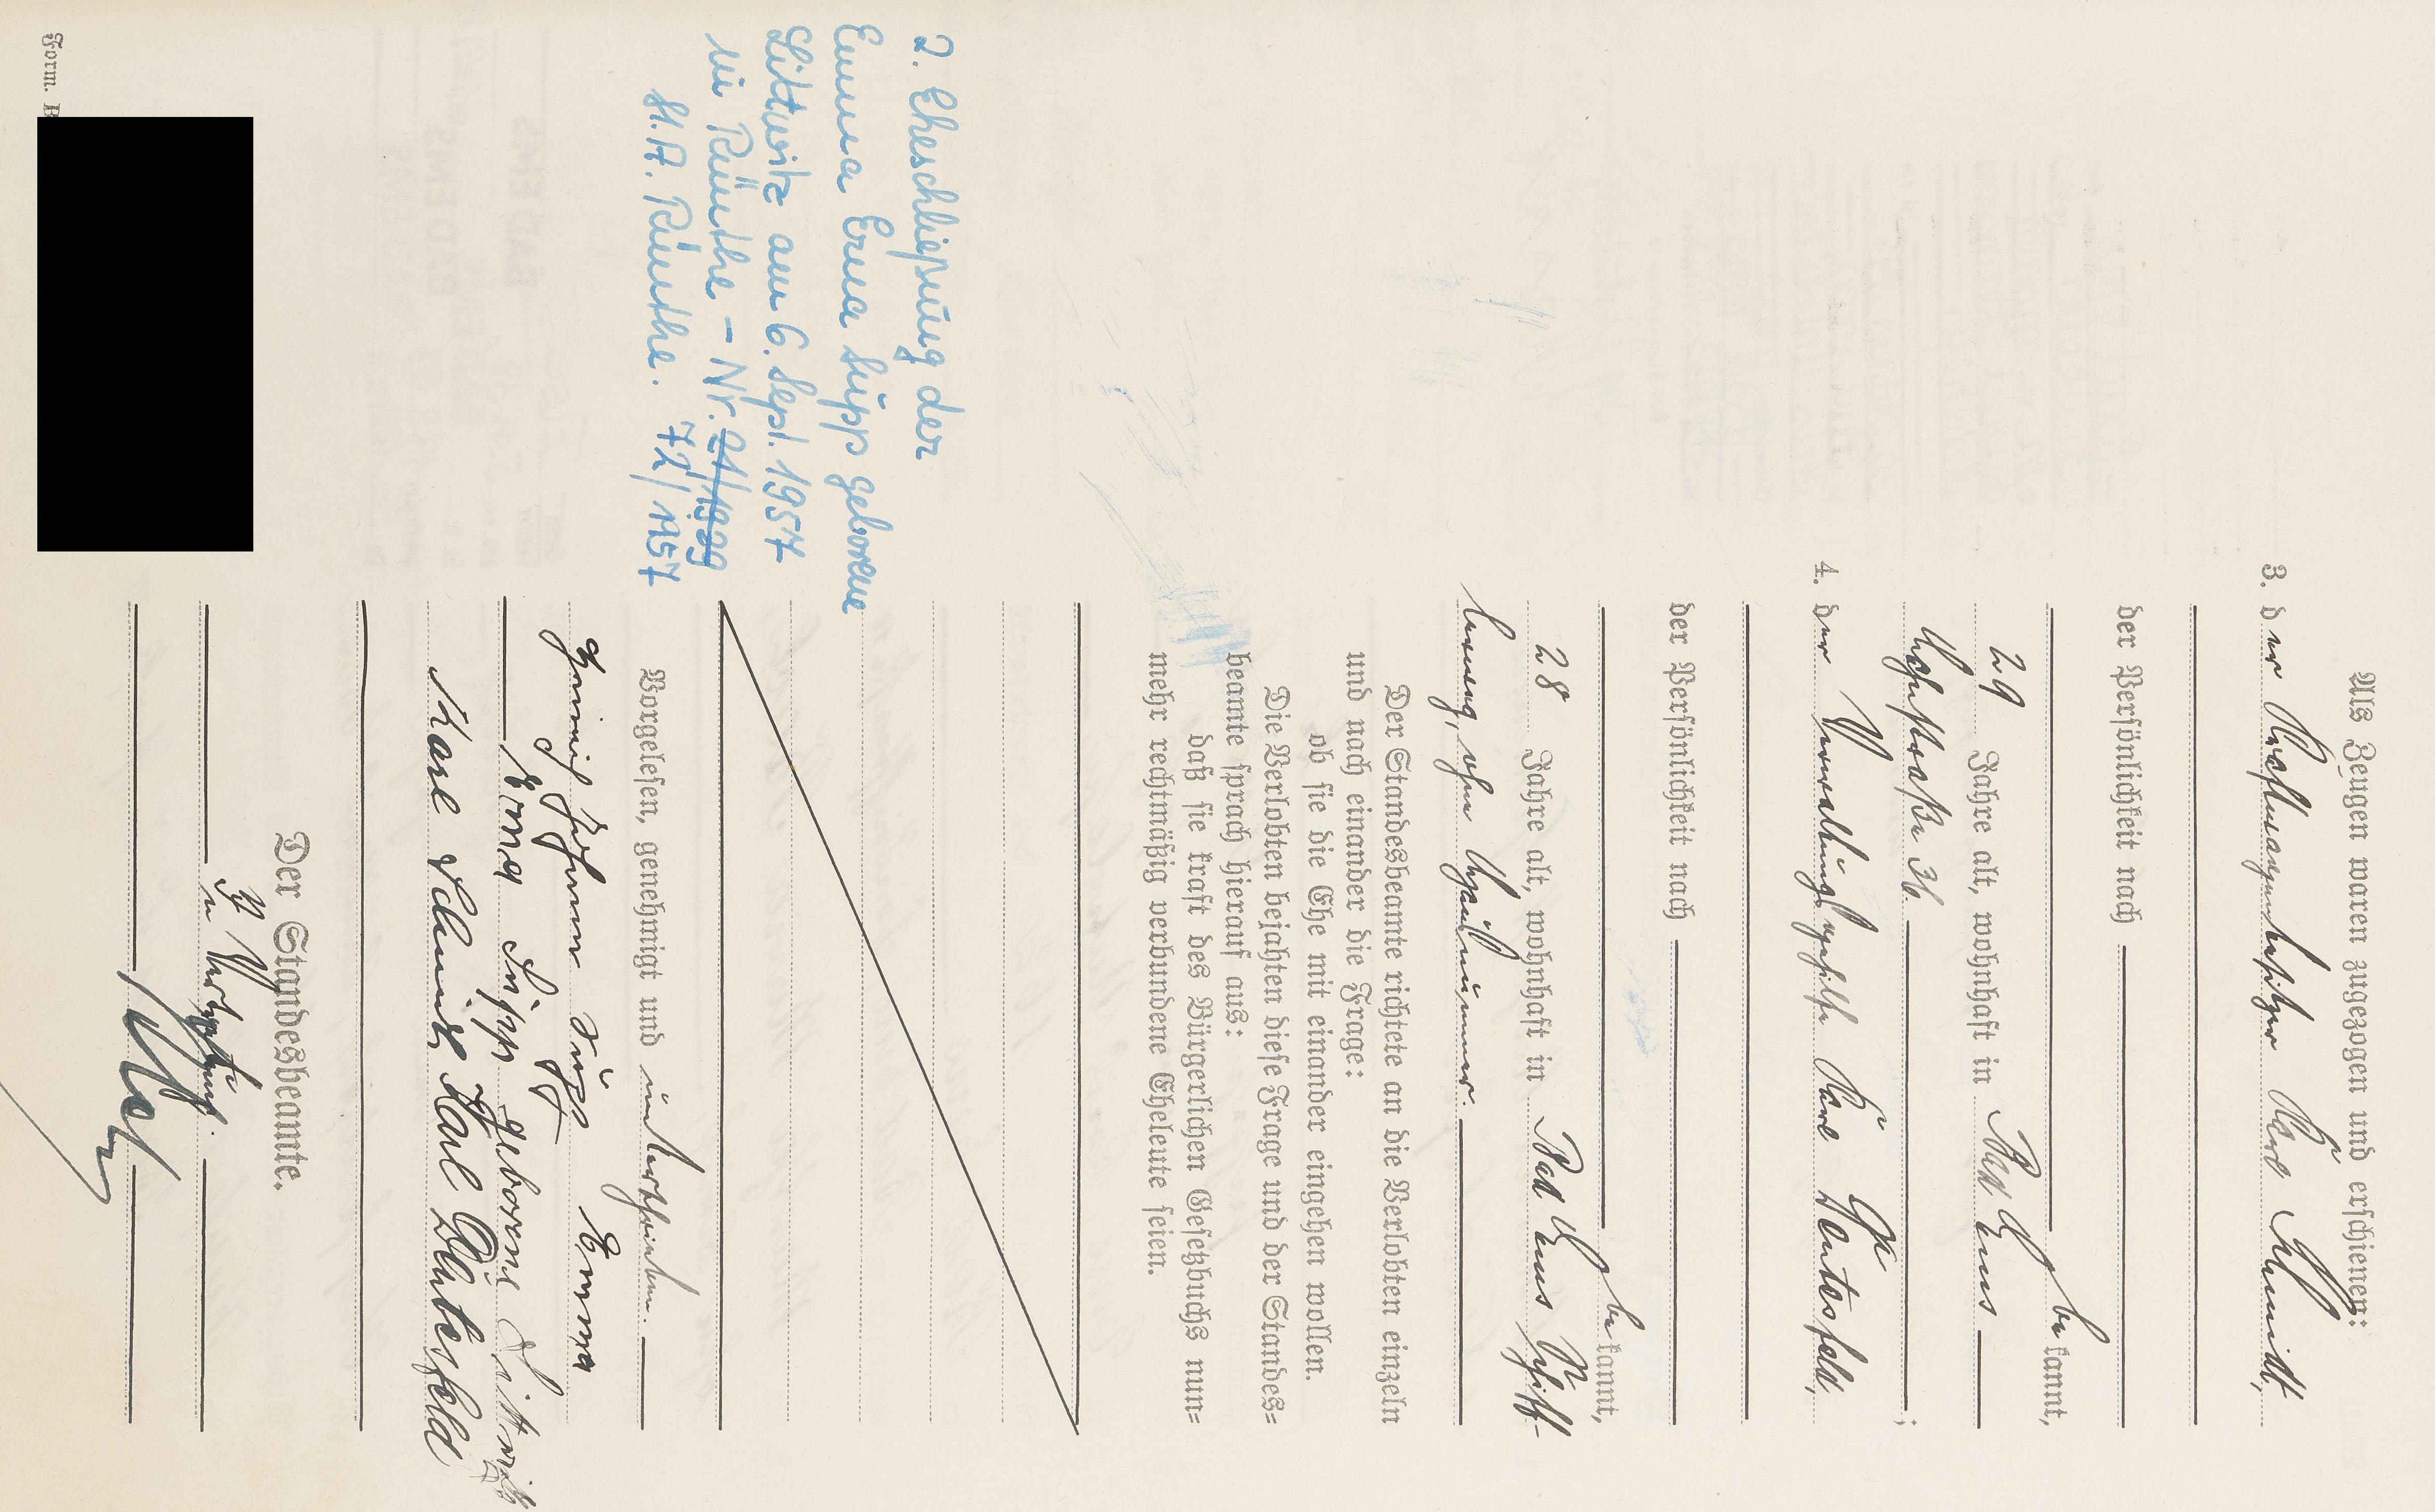 Als Zeugen waren zugezogen und erschienen:
3. der Kraftwagenbesitzer Karl Schmidt,
der Persönlichkeit nach
bekannt,
29 Jahre alt, wohnhaft in Bad Ems
36
;
4. der Verwaltungsgehilfe Karl Däntesfeld,
der Persönlichkeit nach
bekannt,
28 Jahre alt, wohnhaft in Bad Ems
ohne
Der Standesbeamte richtete an die Verlobten einzeln
und nach einander die Frage:
ob sie die Ehe mit einander eingehen wollen.
Die Verlobten bejahten diese Frage und der Standes=
beamte sprach hierauf aus:
daß sie kraft des Bürgerlichen Gesetzbuchs nun=
mehr rechtmäßig verbundene Eheleute seien.
Vorgelesen, genehmigt und unterschrieben.
Süpp
Erna Süpp geborene Littwitz
Karl Schmidt Karl Däntesfeld
Der Standesbeamte.
In Vertretung.
2. Eheschließung der
Emma Erna Süpp geborene
Littwitz am 6. Sept. 1957
in Rünthe - Nr. 21/1999
St.A. Rünthe. 72/1957
Form. B